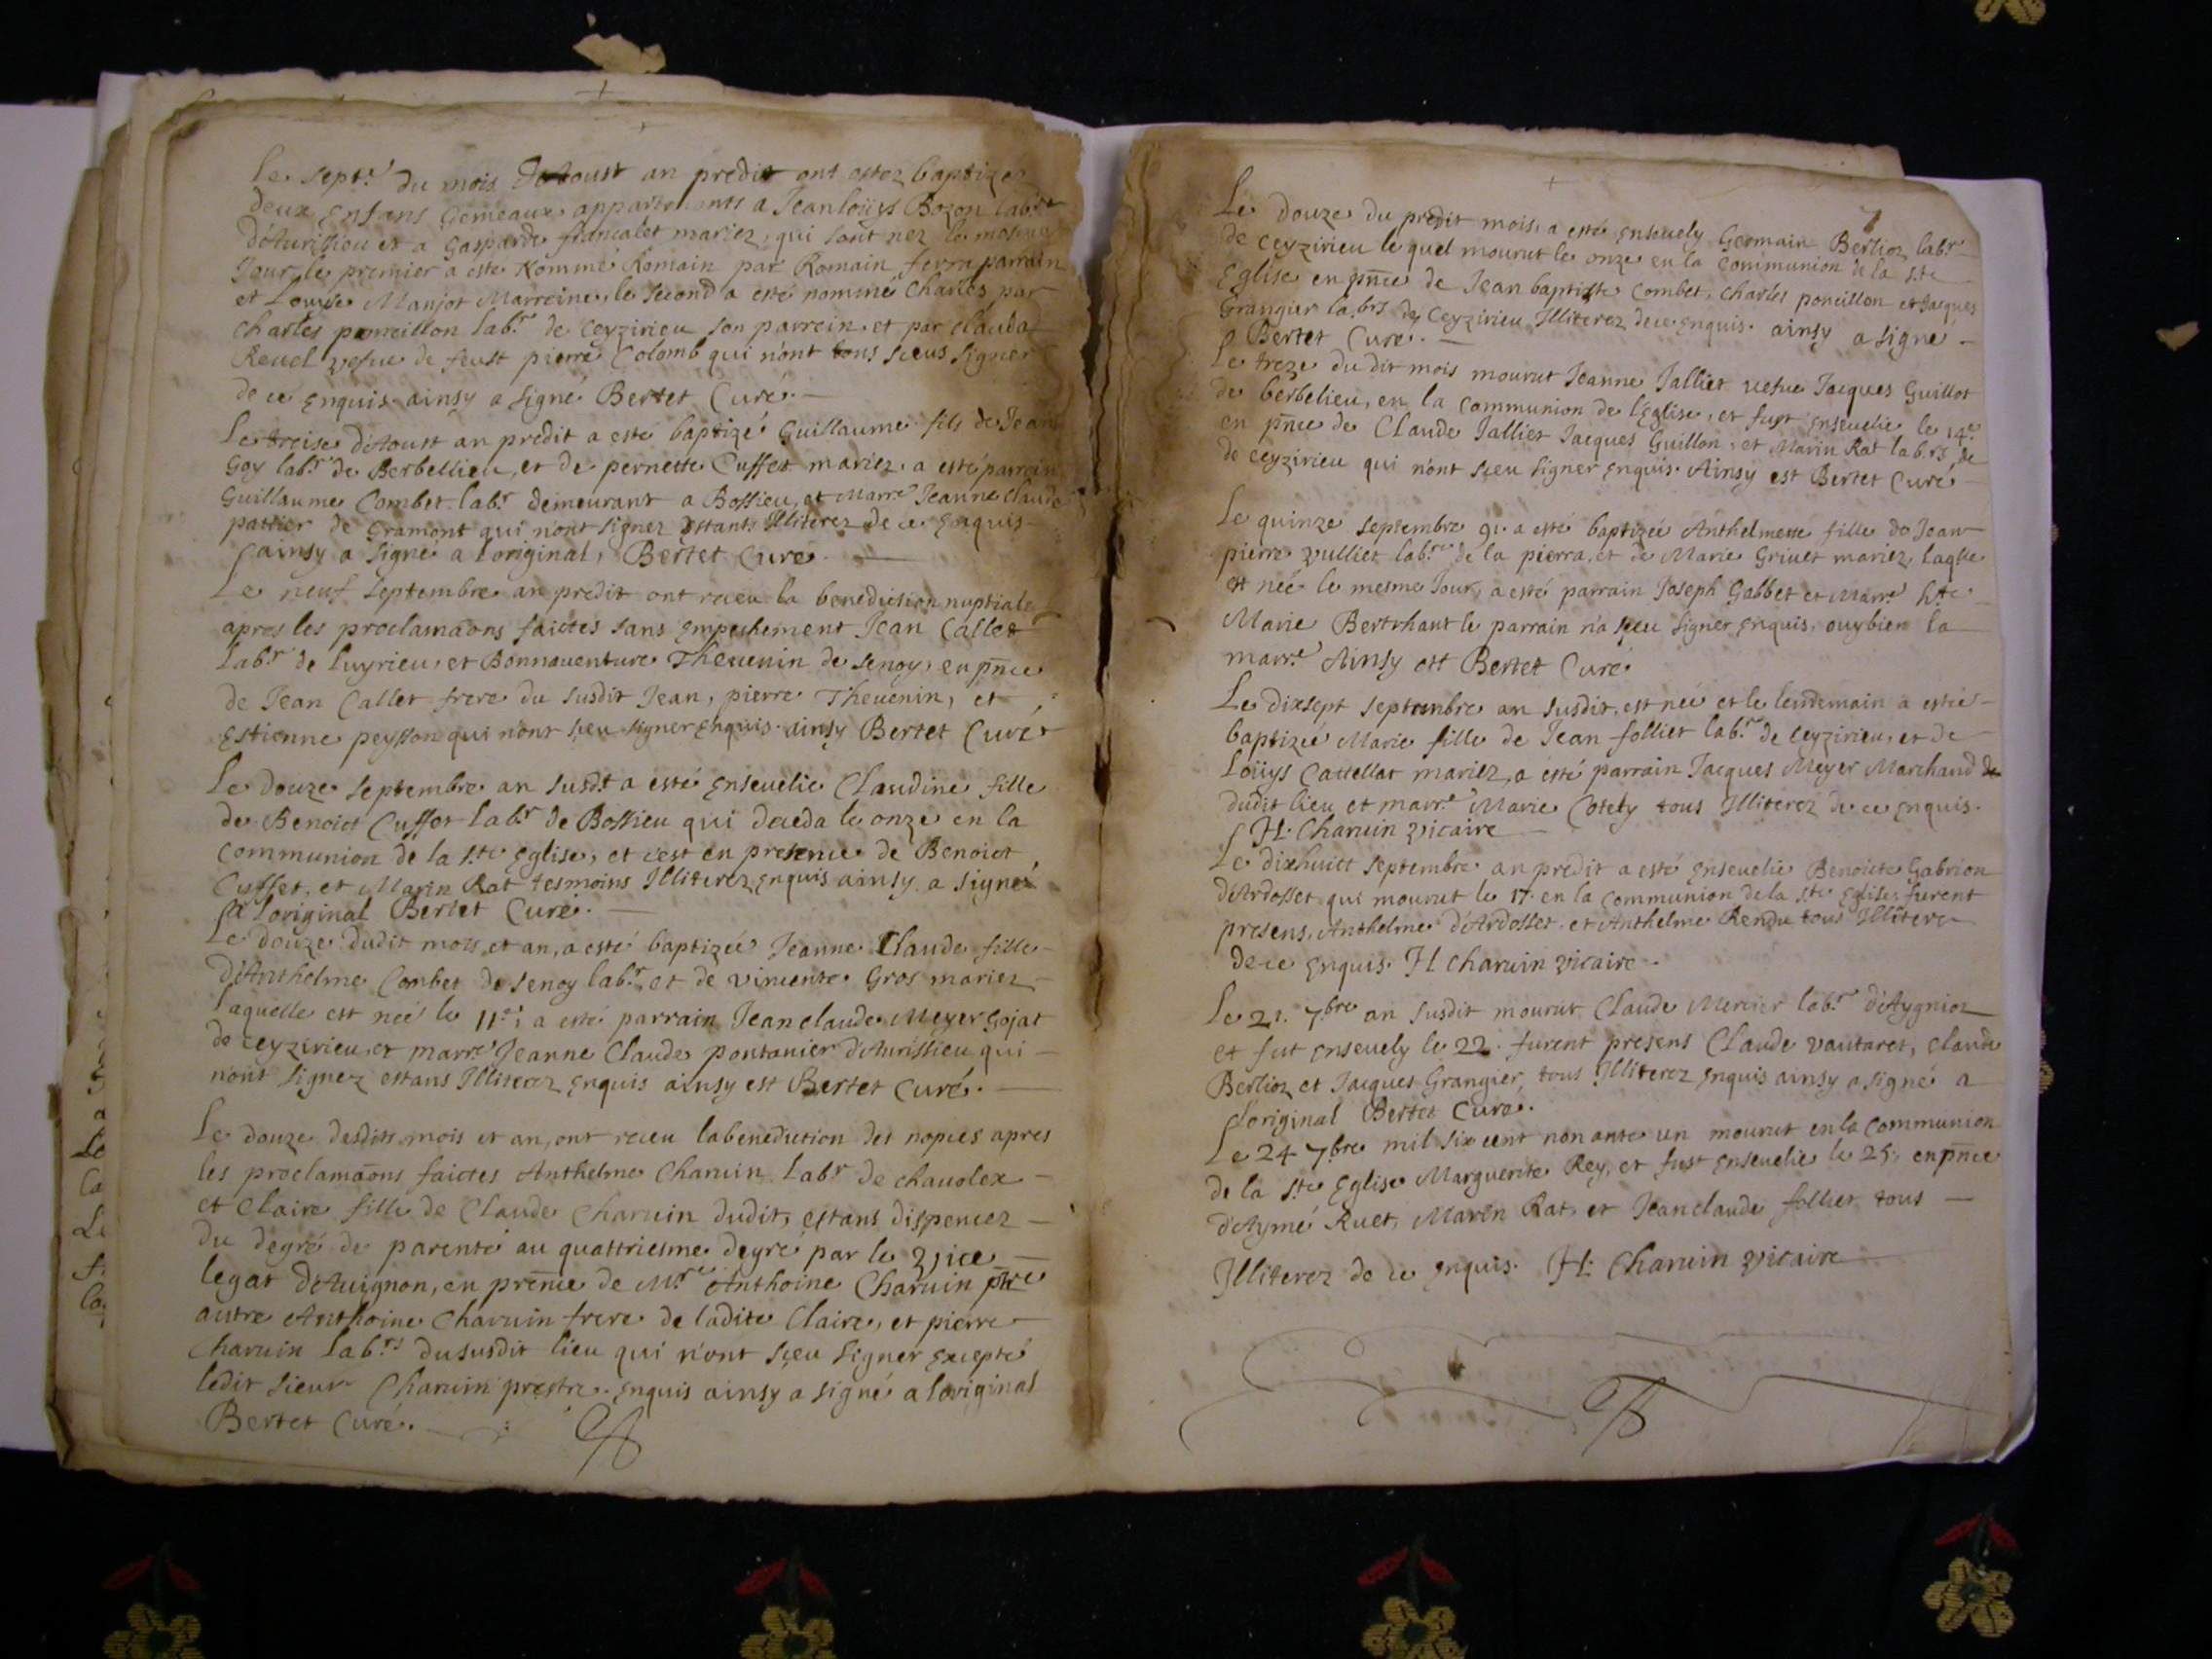 Le sept.e du mois d'Aoust an predit ont estez baptizez
deux Enfans Gemeaux appartenants a Jean loüys Bozon lab.r
d'Aurissieu et a Gasparde francalet mariez, qui sont nez le mesme
Jour, le premier a este Nommé Romain par Romain ferra parrain
et Louyse Manjot Marreine, le second a esté nommé Charles par
Charles ponceillon lab.r de Ceyzirieu son parrein. et par Clauda
Revel vefue de feust pierre Colomb qui n'ont tous sceus signer
de ce Enquis. ainsy a signé Bertet Curé.
Le treise d'Aoust an predit a esté baptizé Guillaume fils de Jean
Goy lab.r de Berbellieu, et de pernette Cuffet mariez. a esté parrein
Guillaume Combet lab.r demeurant a Bossieu, et Marr.e Jeanne Claude
pattier de Gramont qui n'ont signez Estants Illiterez de ce Enquis
ainsy a signé a l'original, Bertet Curé.
Le neuf septembre an predit ont receu la benediction nuptiale
apres les proclamaons faictes sans Empeschement Jean Callet
lab.r de luyrieu, et Bonnauenture Theuenin de senoy, en pnce
de Jean Callet frere du susdit Jean, pierre Theuenin, et
Estienne peysson qui n'ont sceu signer Enquis. ainsy Bertet Curé
Le douze septembre an susd.t a esté Enseuelie Claudine fille
de Benoict Cuffet lab.r de Bossieu qui deceda le onze en la
Communion de la s.te Eglise, et c'est en presence de Benoict
Cuffet, et Marin Rat tesmoins Illiterez Enquis ainsy a signé
a l'original Bertet Curé.
Le douze dudit mois et an, a esté baptizée Jeanne Claude fille
d'Anthelme Combet de senoy lab.r et de vincente Gros mariez
laquelle est née le 11.e; a esté parrain Jean claude Meyer Gojat
de Ceyzirieu, et marr.e Jeanne Claude pontanier d'Aurissieu qui
n'ont signez estans Illiterez Enquis ainsy est Bertet Curé.
Le douze desdits mois et an, ont receu la benediction des nopces apres
les proclamaons faictes Anthelme Charuin lab.r de chauolex
et Claire fille de Claude Charuin dudit, estans dispencez
du degré de parenté au quattriesme degré par le vice
legat d'Auignon, en prence de M.re Anthoine Charuin ptre
autre Anthoine Charuin frere de ladite Claire, et pierre
Charuin lab.rs dususdit lieu qui n'ont sceu signer Excepté
ledit sieur Charuin prestre. Enquis ainsy a signé a l'original
Bertet Curé.
7
Le douze du predit mois, a esté Enseuely Germain Berlioz lab.r
de Ceyzirieu le quel mourut le onze en la Communion de la s.te
Eglise en pnce de Jean baptiste Combet, Charles ponceillon et Jacques
Grangier lab.rs de Ceyzirieu Illiterez de ce Enquis. ainsy a signé
Bertet Curé.
Le treze dudit mois mourut Jeanne Jalliet vefue Jacques Guillot
de berbelieu, en la Communion de l'Eglise, et fust Enseuelie le 14.e
en pnce de Claude Jalliet Jacques Guillon, et Marin Rat lab.rs de
de Ceyzirieu qui n'ont sceu signer Enquis. Ainsy est Bertet Curé
Le quinze septembre 91. a esté baptizée Anthelmette fille de Jean
pierre vulliet lab.r de la pierra, et de Marie Griuet mariez, laqlle
est née le mesme Jour, a esté parrain Joseph Gabbet et Marr.e h.te
Marie Berthant le parrain n'a sceu signer Enquis, ouybien la
marr.e Ainsy est Bertet Curé
Le dixsept septembre an susdit, est née et le lendemain a estée
baptizée Marie fille de Jean folliet lab.r de Ceyzirieu, et de
Loüys Cattellat mariez, a esté parrain Jacques Meyer Marchand
dudit lieu et marr.e Marie Cotety tous Illiterez de ce Enquis.
H. Charuin vicaire
Le dixhuitt septembre an predit a esté Enseuelie Benoitte Gabrion
d'Ardosset qui mourut le 17. en la Communion de la s.te Eglise, furent
presens, Anthelme d'Ardosset, et Anthelme Rendu tous Illitere
de ce Enquis. H. Charuin vicaire
Le 21. 7.bre an susdit mourut Claude Mercier lab.r d'Aygnioz
et fut Enseuely le 22. furent presens Claude vautaret, Claude
Berlioz et Jacques Grangier, tous Illiterez Enquis ainsy a signé a
l'original Bertet Curé.
Le 24 7.bre mil six cent nonante un mourut en la Communion
de la s.te Eglise Marguerite Rey, et fust Enseuelie le 25, en pnce
d'Aymé Ruet, Marin Rat, et Jean claude folliet tous
Illiterez de ce Enquis. H. Charuin vicaire